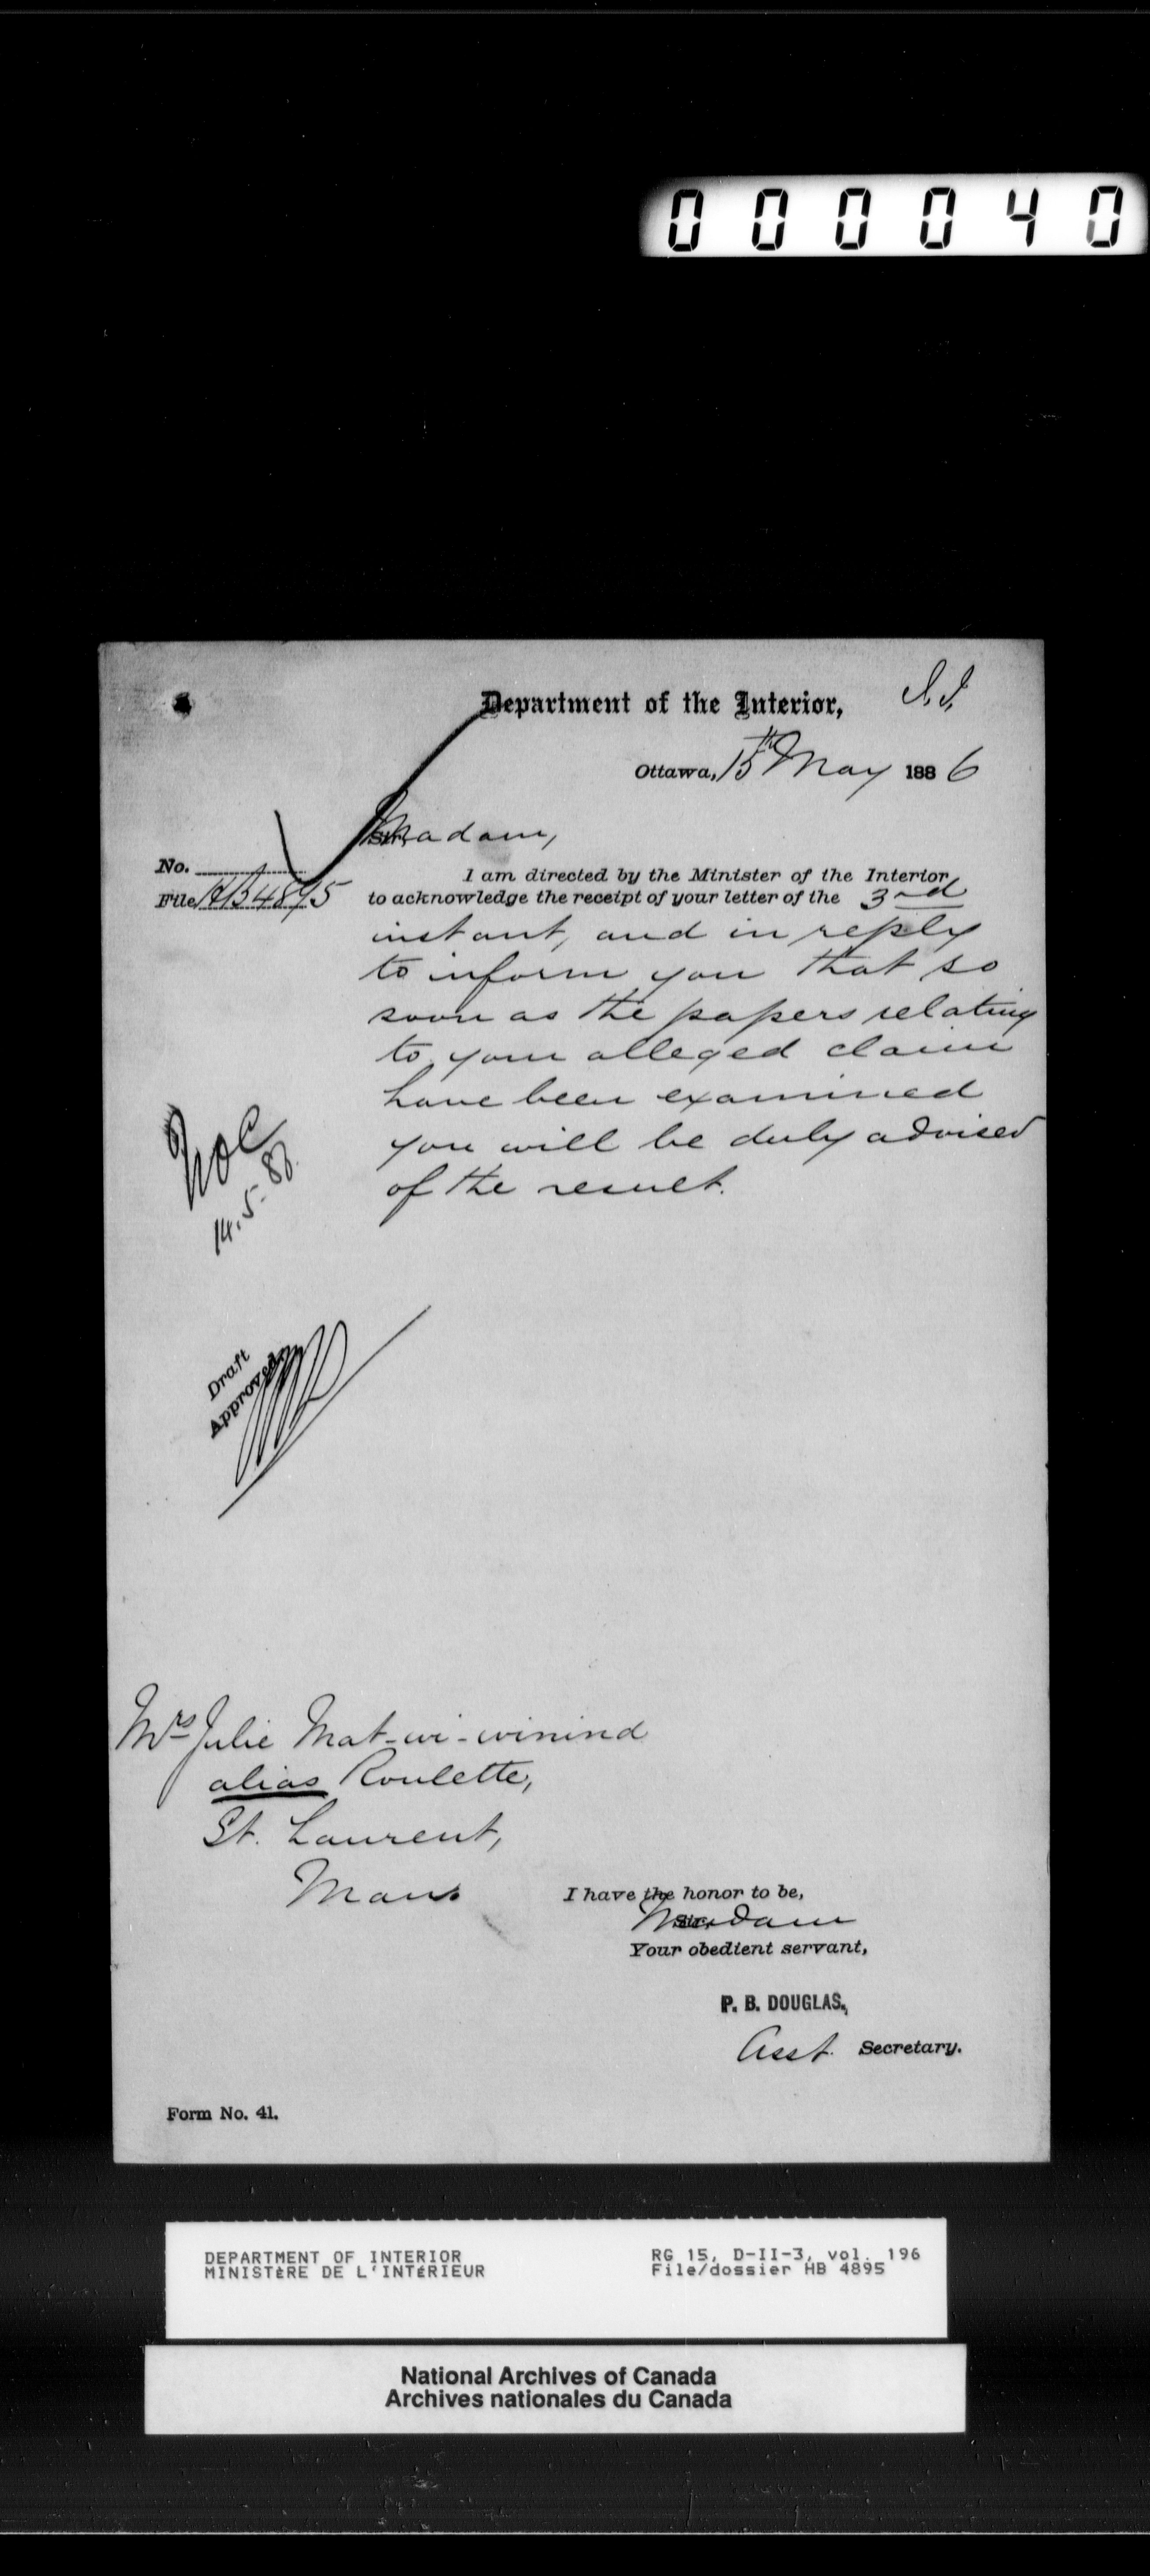 000040
Department of the Interior,
Ottawa, 15th May 1886
Madam,
No.
File HB 4895
I am directed by the Minister of the Interior
to acknowledge the receipt of your letter of the 3rd
instant, and in reply
to inform you that so
soon as the papers relating
to your alleged claim
have been examined
you will be duly advised
of the result.
14.5.86
Draft
Approved.
Mrs Julie Mat-wi-winind
alias Roulette,
St. Laurent,
Man.
I have the honor to be,
Madam
Your obedient servant,
P. B. DOUGLAS,
Asst. Secretary.
Form No. 41.
DEPARTMENT OF INTERIOR
MINISTÈRE DE L'INTÉRIEUR
RG 15, D-II-3, vol. 196
File/dossier HB 4895
National Archives of Canada
Archives nationales du Canada